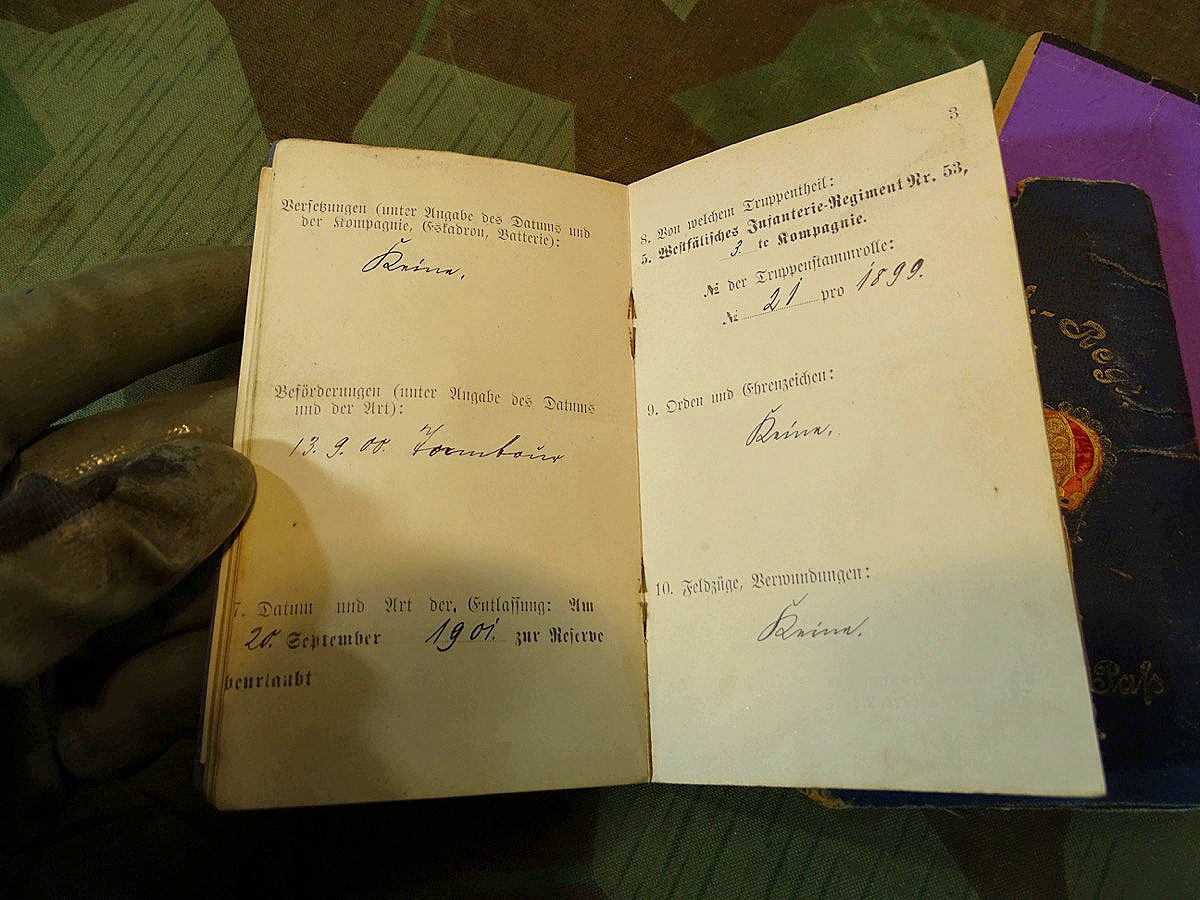 Versetzungen (unter Angabe des Datums und
der Kompagnie, Eskadron, Batterie):
Keine.
Beförderungen (unter Angabe des Datums
und der Art):
13. 9. 00. Tambour
7. Datum und Art der Entlassung: Am
20. September 1901. zur Reserve
beurlaubt
3
8. Von welchem Truppentheil:
5. Westfälisches Infanterie-Regiment Nr. 53,
3. te Kompagnie.
№ der Truppenstammrolle:
№ 21 pro 1899.
9. Orden und Ehrenzeichen:
Keine.
10. Feldzüge, Verwundungen:
Keine.
.-Reg
Paß